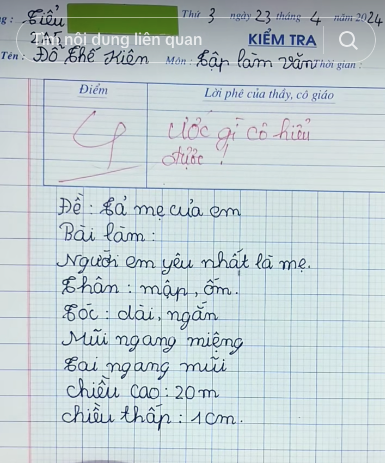 Tiểu
Thứ 3 ngày 23 tháng 4 năm 2024
Tìm nội dung liên quan
KIỂM TRA
Tên: Đỗ Thế Kiên Môn: Tập làm văn Thời gian:
Điểm
Lời phê của thầy, cô giáo
Ước gì cô hiểu
được!
Đề: Tả mẹ của em
Bài làm:
Người em yêu nhất là mẹ.
Thân: mập, ốm.
Tóc: dài, ngắn
Mũi ngang miệng
Tai ngang mũi
chiều cao: 20m
chiều thấp: 1cm.